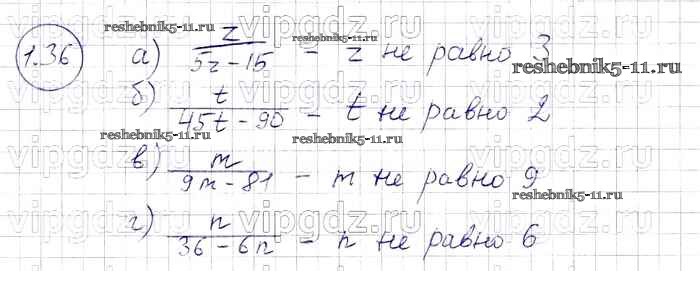 1.36 а) z / 5z - 15 - z не равно 3
б) t / 45t - 90 - t не равно 2
в) m / 9m - 81 - m не равно 9
г) n / 36 - 6n - n не равно 6
reshebnik5-11.ru
reshebnik5-11.ru
reshebnik5-11.ru
reshebnik5-11.ru
reshebnik5-11.ru
vipgdz.ru vipgdz.ru vipgdz.ru
vipgdz.ru vipgdz.ru vipgdz.ru
vipgdz.ru vipgdz.ru vipgdz.ru
vipgdz.ru vipgdz.ru vipgdz.ru